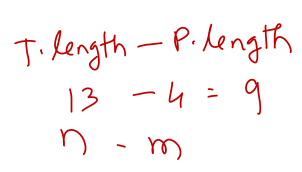 T. length - P. length
13 - 4 = 9
n - m